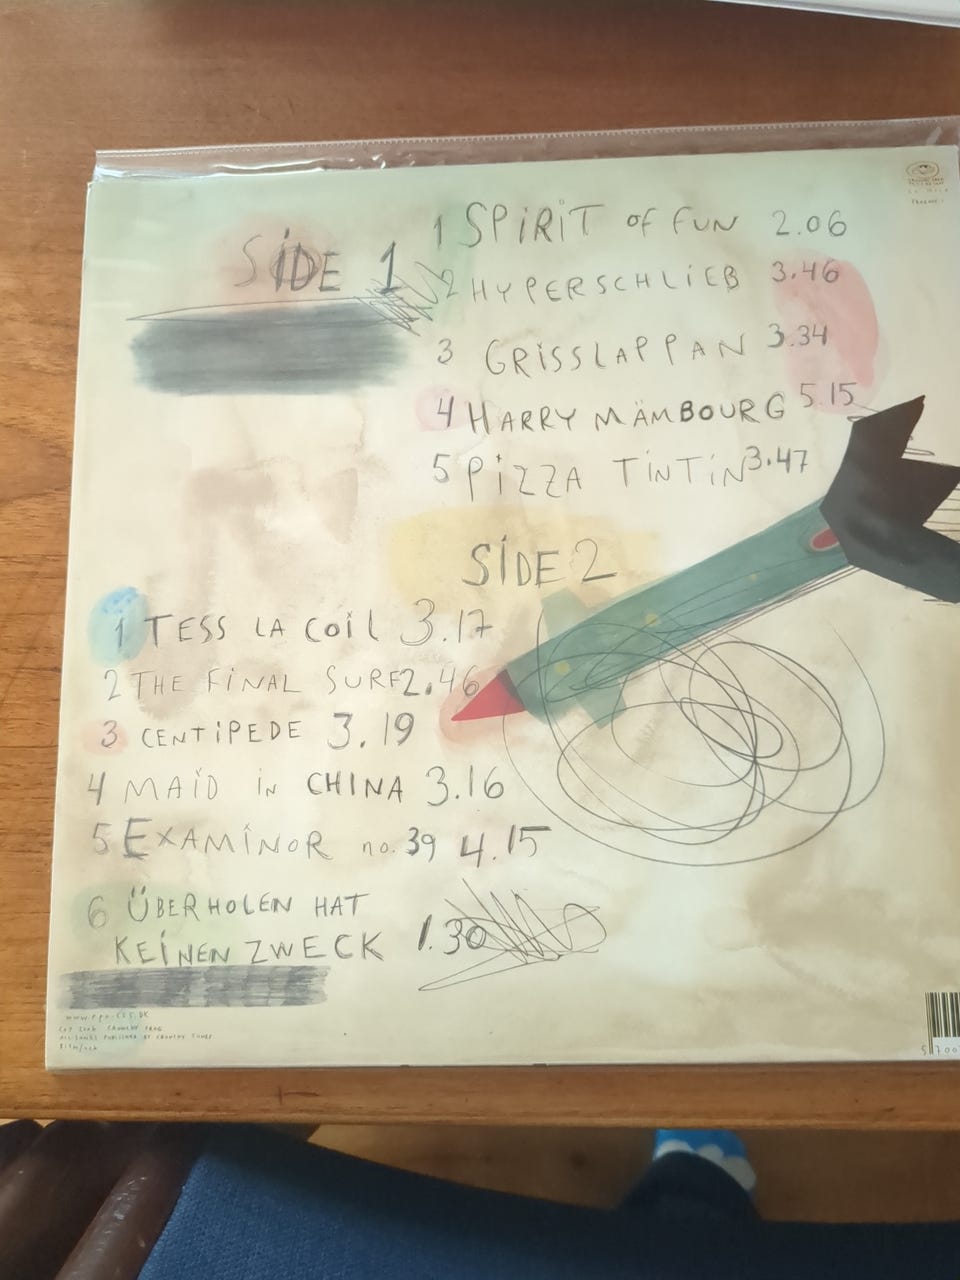 SIDE 1
1 SPIRIT OF FUN 2.06
2 HYPERSCHLIEB 3.46
3 GRISSLAPPAN 3.34
4 HARRY MÄMBOURG 5.15
5 PIZZA TINTIN 3.47
SIDE 2
1 TESS LA COIL 3.17
2 THE FINAL SURF 2.46
3 CENTIPEDE 3.19
4 MAID IN CHINA 3.16
5 EXAMINOR no. 39 4.15
6 ÜBERHOLEN HAT
KEINEN ZWECK 1.30
CRUNCHY FROG
ALL SONGS PUBLISHED BY CRUNCHY TUNES